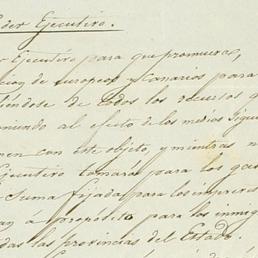 der Ejecutivo.
Ejecutivo para que promueva,
cion de Europeos y Canarios para
iéndose de todos los recursos q
niendo al efecto de los medios sigui
men con este objeto, y mientras n
Ejecutivo tomara para los gas
suma fijada para los imprevis
an a propósito para los inmig
das las provincias del Estado.